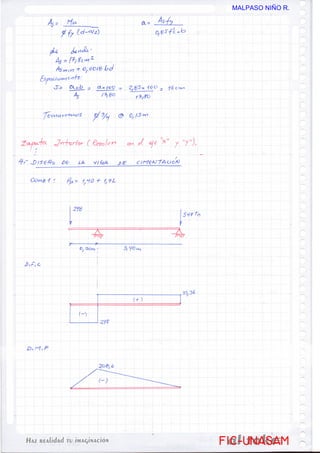 MALPASO NIÑO R.
As = Mu / φ fy (d-a/2)     a = As fy / 0,85 f'c b
de donde:
As = 17,81 cm²
As min = 0,0018 bd
Espaciamiento
S = ab / As = a×100 / 17,80 = 2,85×100 / 17,80 = 16 cm
Tomaremos φ 3/4 @ 0,15m
Zapata Interior (Resolver en el eje "x" y "y").
A.- DISEÑO DE LA VIGA DE CIMENTACIÓN
COMB 1: Pu = 1,4D + 1,7L
298
0,70m
3,40m
D.F.C
(+)
(-)
298
D.M.F
208,6
(-)
Haz realidad tu imaginación
FIC-UNASAM